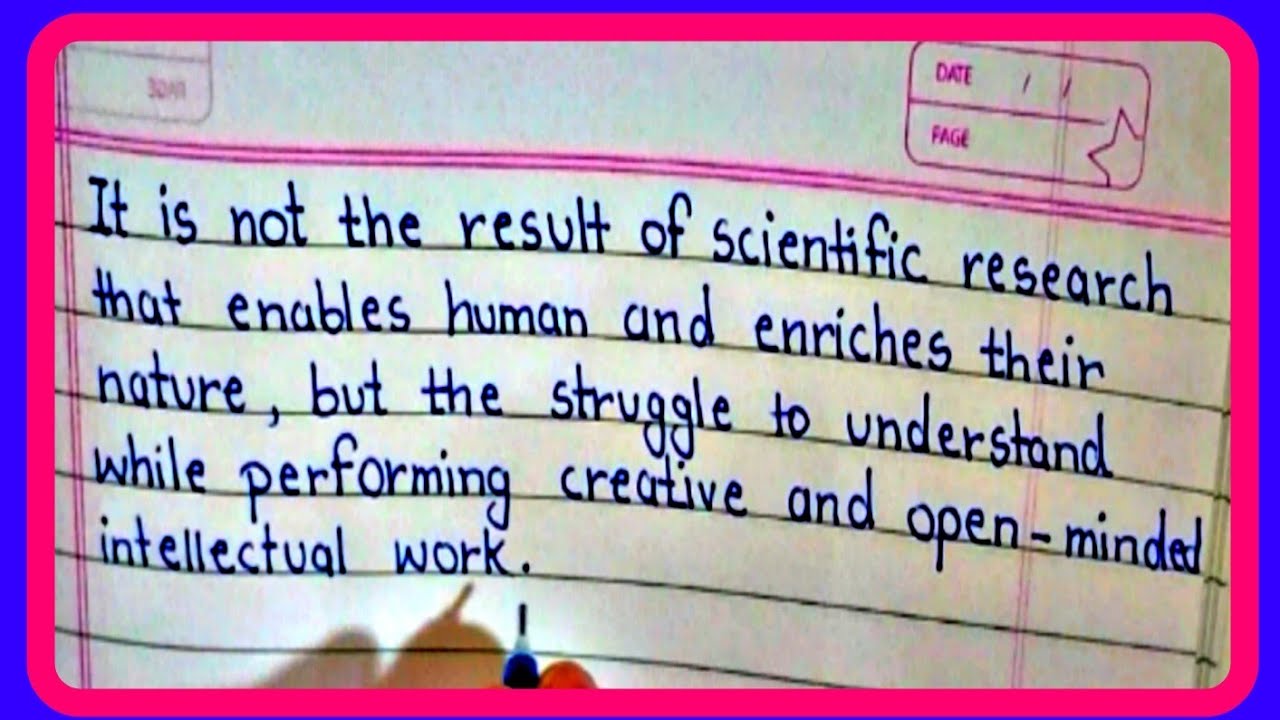 DATE / /
PAGE
PAGE
It is not the result of scientific research
that enables human and enriches their
nature, but the struggle to understand
while performing creative and open-minded
intellectual work.